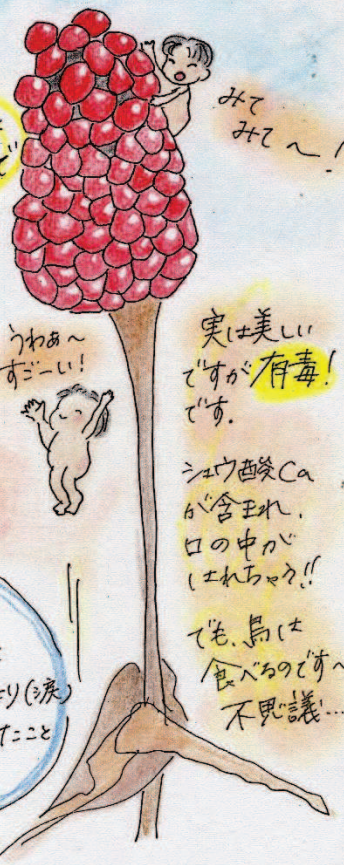 みて
みて〜!
うわぁ〜
すごーい!
実は美しい
ですが有毒!
です.
シュウ酸Ca
が含まれ、
口の中が
はれちゃう!!
でも、鳥は
食べるのです〜
不思議…
り(涙)
たこと